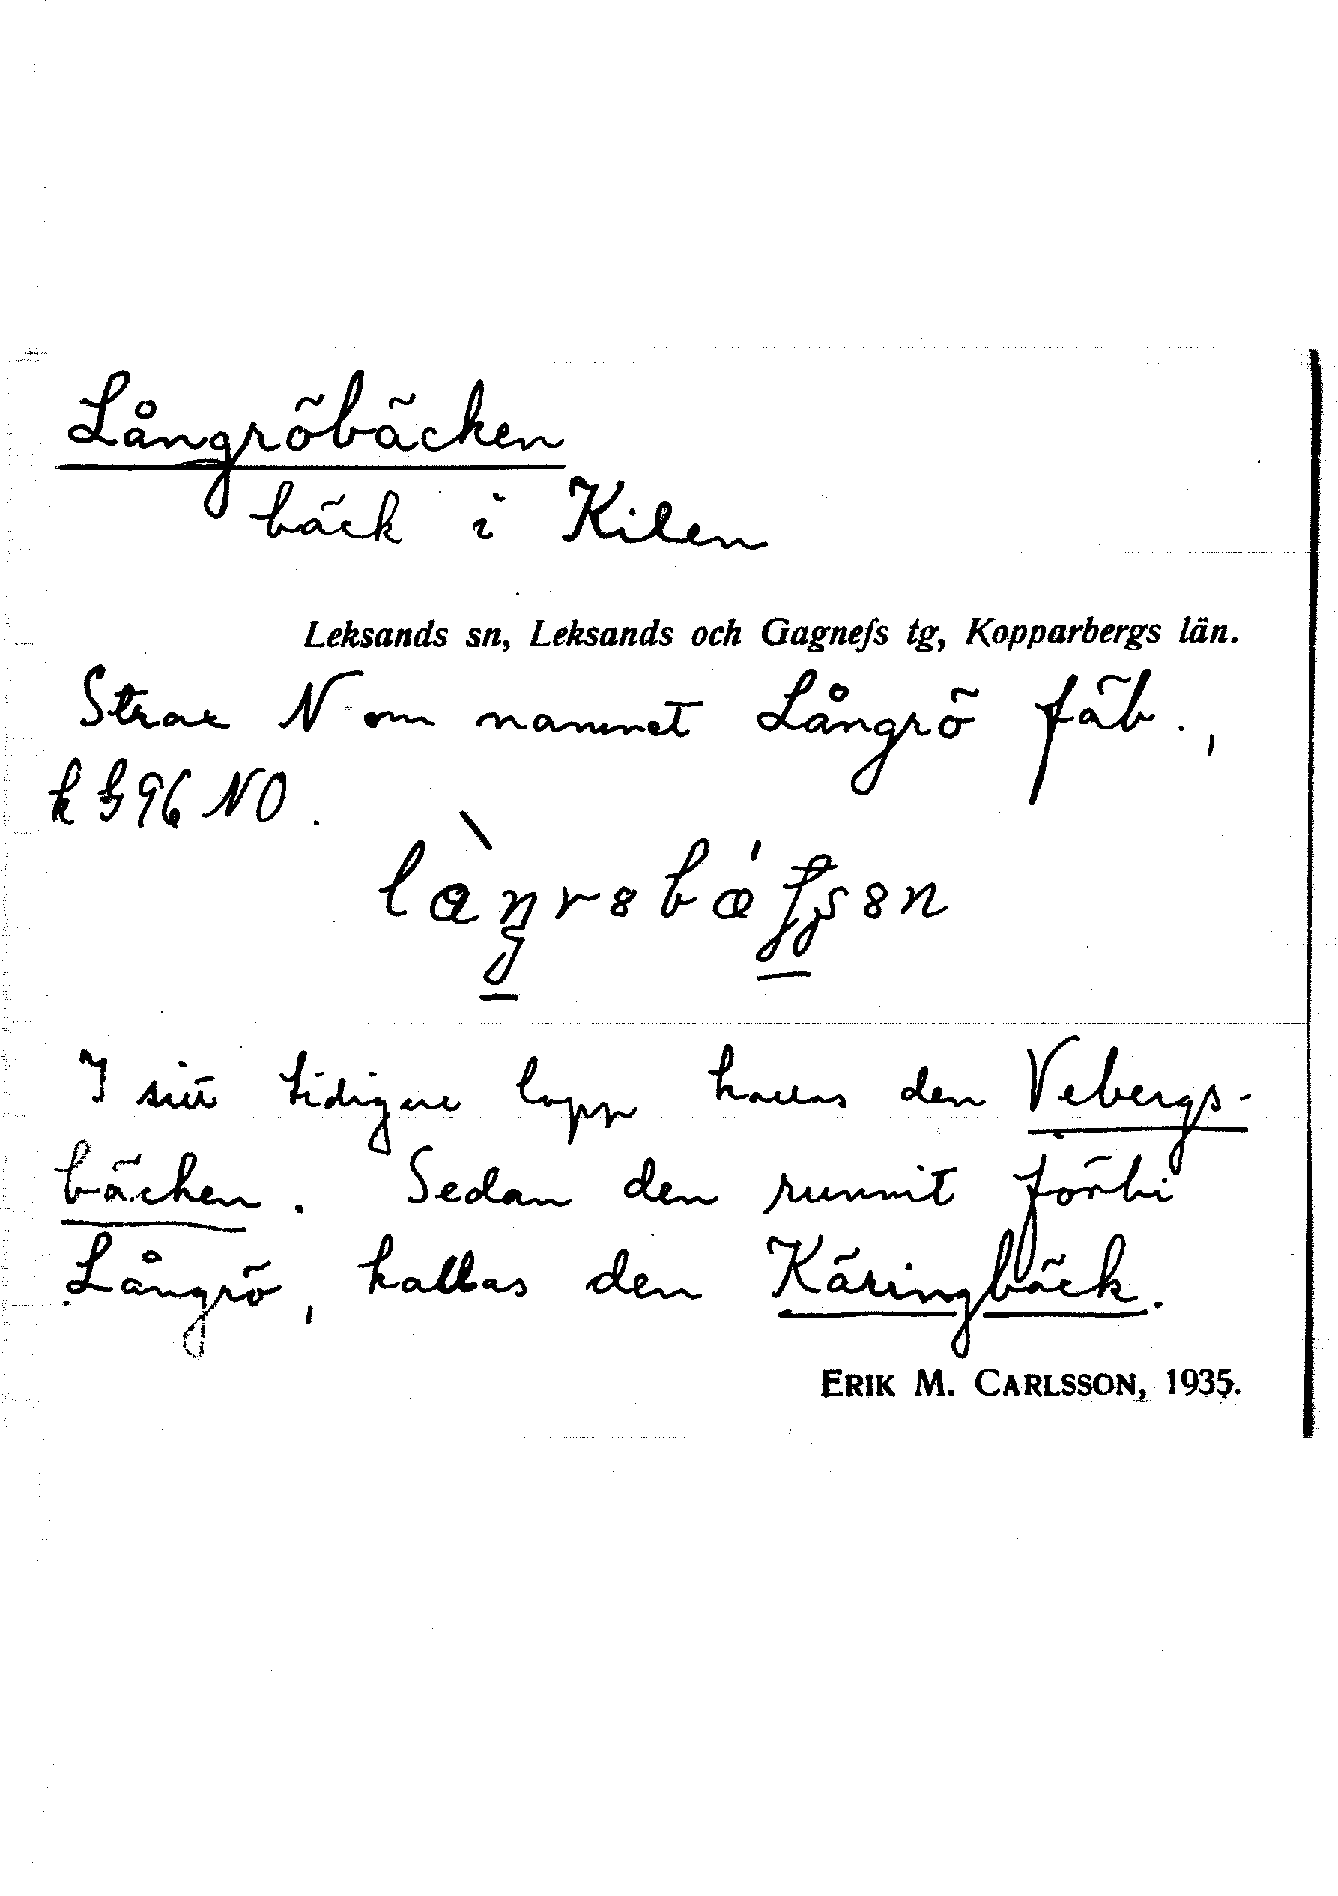 Långröbäcken
bäck i Kilen
Leksands sn, Leksands och Gagnefs tg, Kopparbergs län.
Strax N om namnet Långrö fäb.,
96 NO.
I sitt tidigare lopp kallas den Vebergs-
bäcken. Sedan den runnit förbi
Långrö, kallas den Käringbäck.
ERIK M. CARLSSON, 1935.